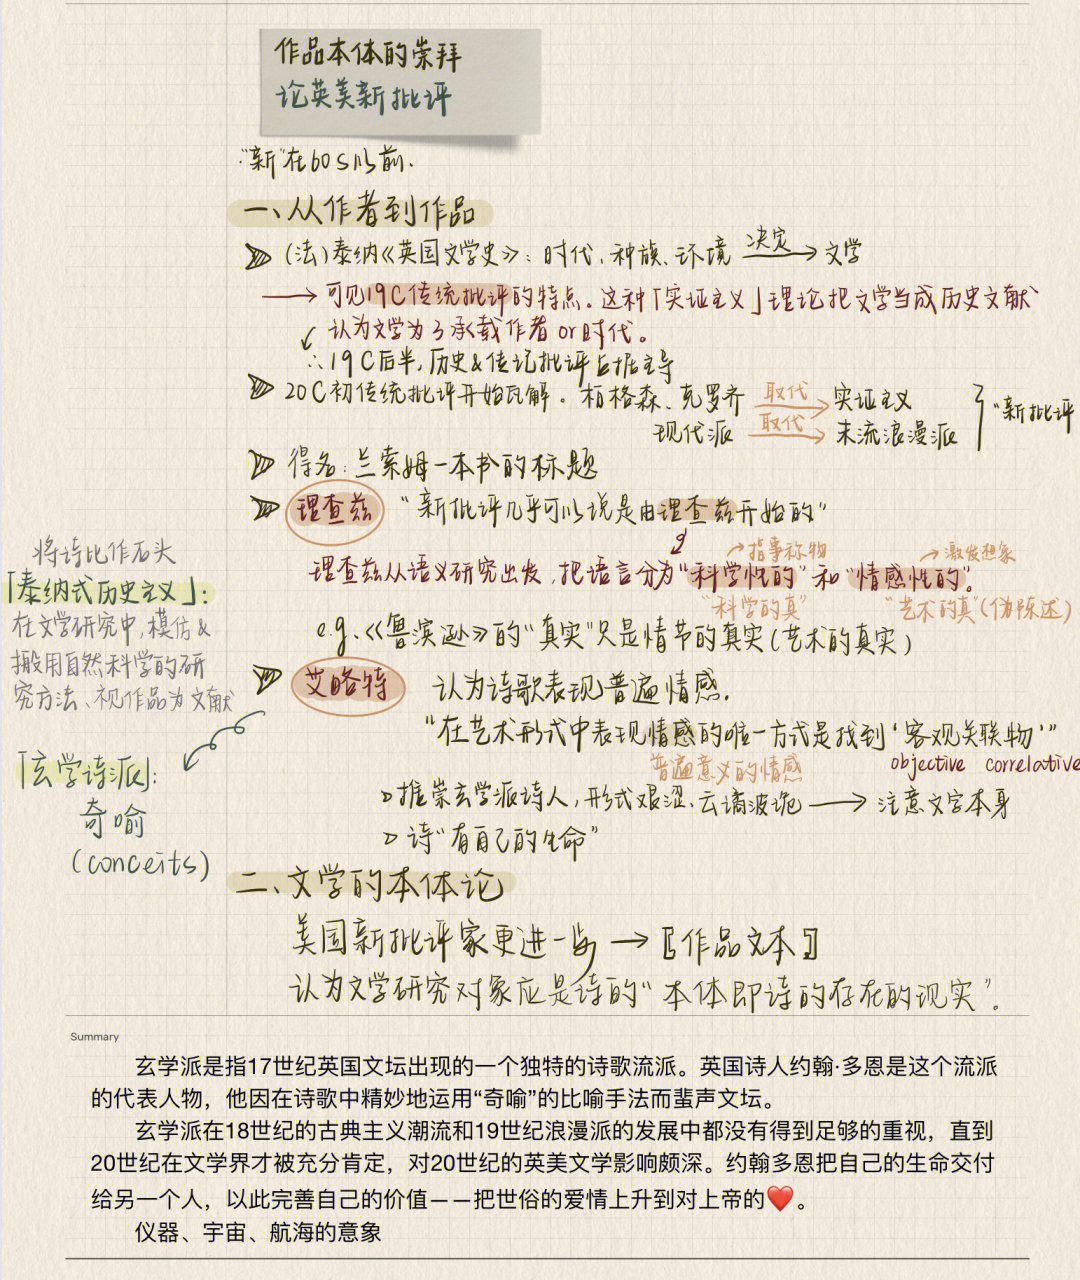 作品本体的崇拜
论英美新批评
"新"在60s以前.
一、从作者到作品
(法)泰纳《英国文学史》: 时代、种族、环境 决定 → 文学
→ 可见19C传统批评的特点。这种「实证主义」理论把文学当成历史文献
认为文学为了承载作者or时代。
∴19C后半,历史&传记批评占据主导
20C初传统批评开始瓦解。柏格森、克罗齐 取代 → 实证主义
现代派 取代 → 末流浪漫派 "新批评
得名:兰索姆一本书的标题
理查兹 "新批评几乎可以说是由理查兹开始的"
→指事称物 →激发想象
理查兹从语义研究出发,把语言分为"科学性的"和"情感性的"。
"科学的真" "艺术的真"(伪陈述)
e.g.《鲁滨逊》的"真实"只是情节的真实(艺术的真实)
艾略特 认为诗歌表现普遍情感.
"在艺术形式中表现情感的唯一方式是找到'客观关联物'"
普遍意义的情感 objective correlative
推崇玄学派诗人,形式艰涩、云谲波诡 → 注意文字本身
诗"有自己的生命"
将诗比作石头
「泰纳式历史主义」:
在文学研究中,模仿&
搬用自然科学的研
究方法、视作品为文献
「玄学诗派」:
奇喻
(conceits)
二、文学的本体论
美国新批评家更进一步 → 〖作品文本〗
认为文学研究对象应是诗的"本体即诗的存在的现实"。
Summary
玄学派是指17世纪英国文坛出现的一个独特的诗歌流派。英国诗人约翰·多恩是这个流派
的代表人物，他因在诗歌中精妙地运用“奇喻”的比喻手法而蜚声文坛。
玄学派在18世纪的古典主义潮流和19世纪浪漫派的发展中都没有得到足够的重视，直到
20世纪在文学界才被充分肯定，对20世纪的英美文学影响颇深。约翰多恩把自己的生命交付
给另一个人，以此完善自己的价值——把世俗的爱情上升到对上帝的❤️。
仪器、宇宙、航海的意象